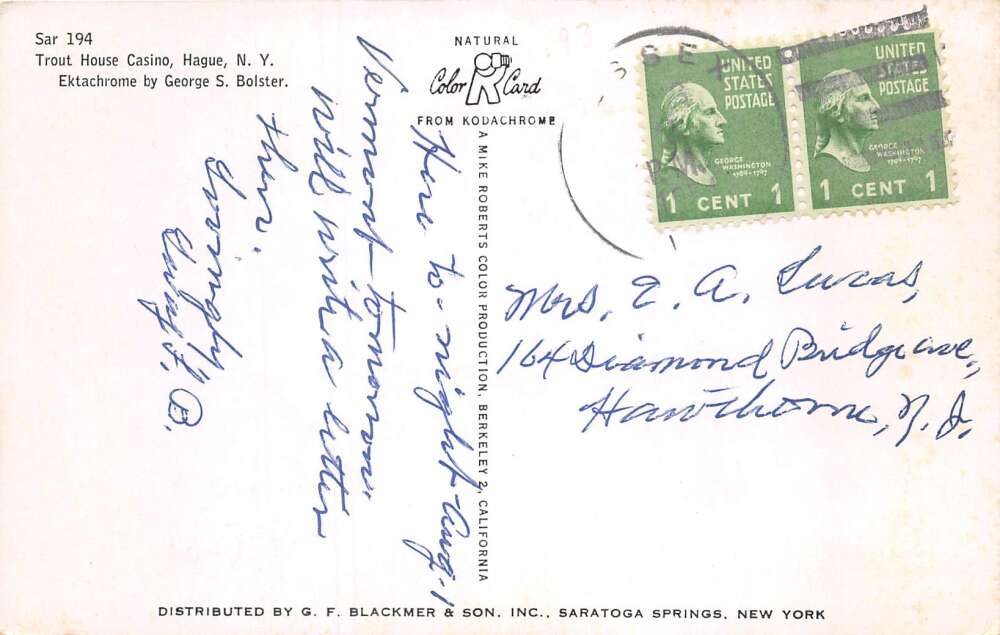 Sar 194
Trout House Casino, Hague, N. Y.
Ektachrome by George S. Bolster.
NATURAL
Color Card
FROM KODACHROME
A MIKE ROBERTS COLOR PRODUCTION, BERKELEY 2, CALIFORNIA
UNITED
STATES
POSTAGE
GEORGE
WASHINGTON
1789-1797
1 CENT 1
UNITED
STATES
POSTAGE
GEORGE
WASHINGTON
1789-1797
1 CENT 1
Here to-night-Aug. 1
Vermont-tomorrow.
Will write a letter
then.
Lovingly
B.
Mrs. E. A. Lucas,
164 Diamond Bridge ave.,
Hawthorne, N. J.
DISTRIBUTED BY G. F. BLACKMER & SON, INC., SARATOGA SPRINGS, NEW YORK